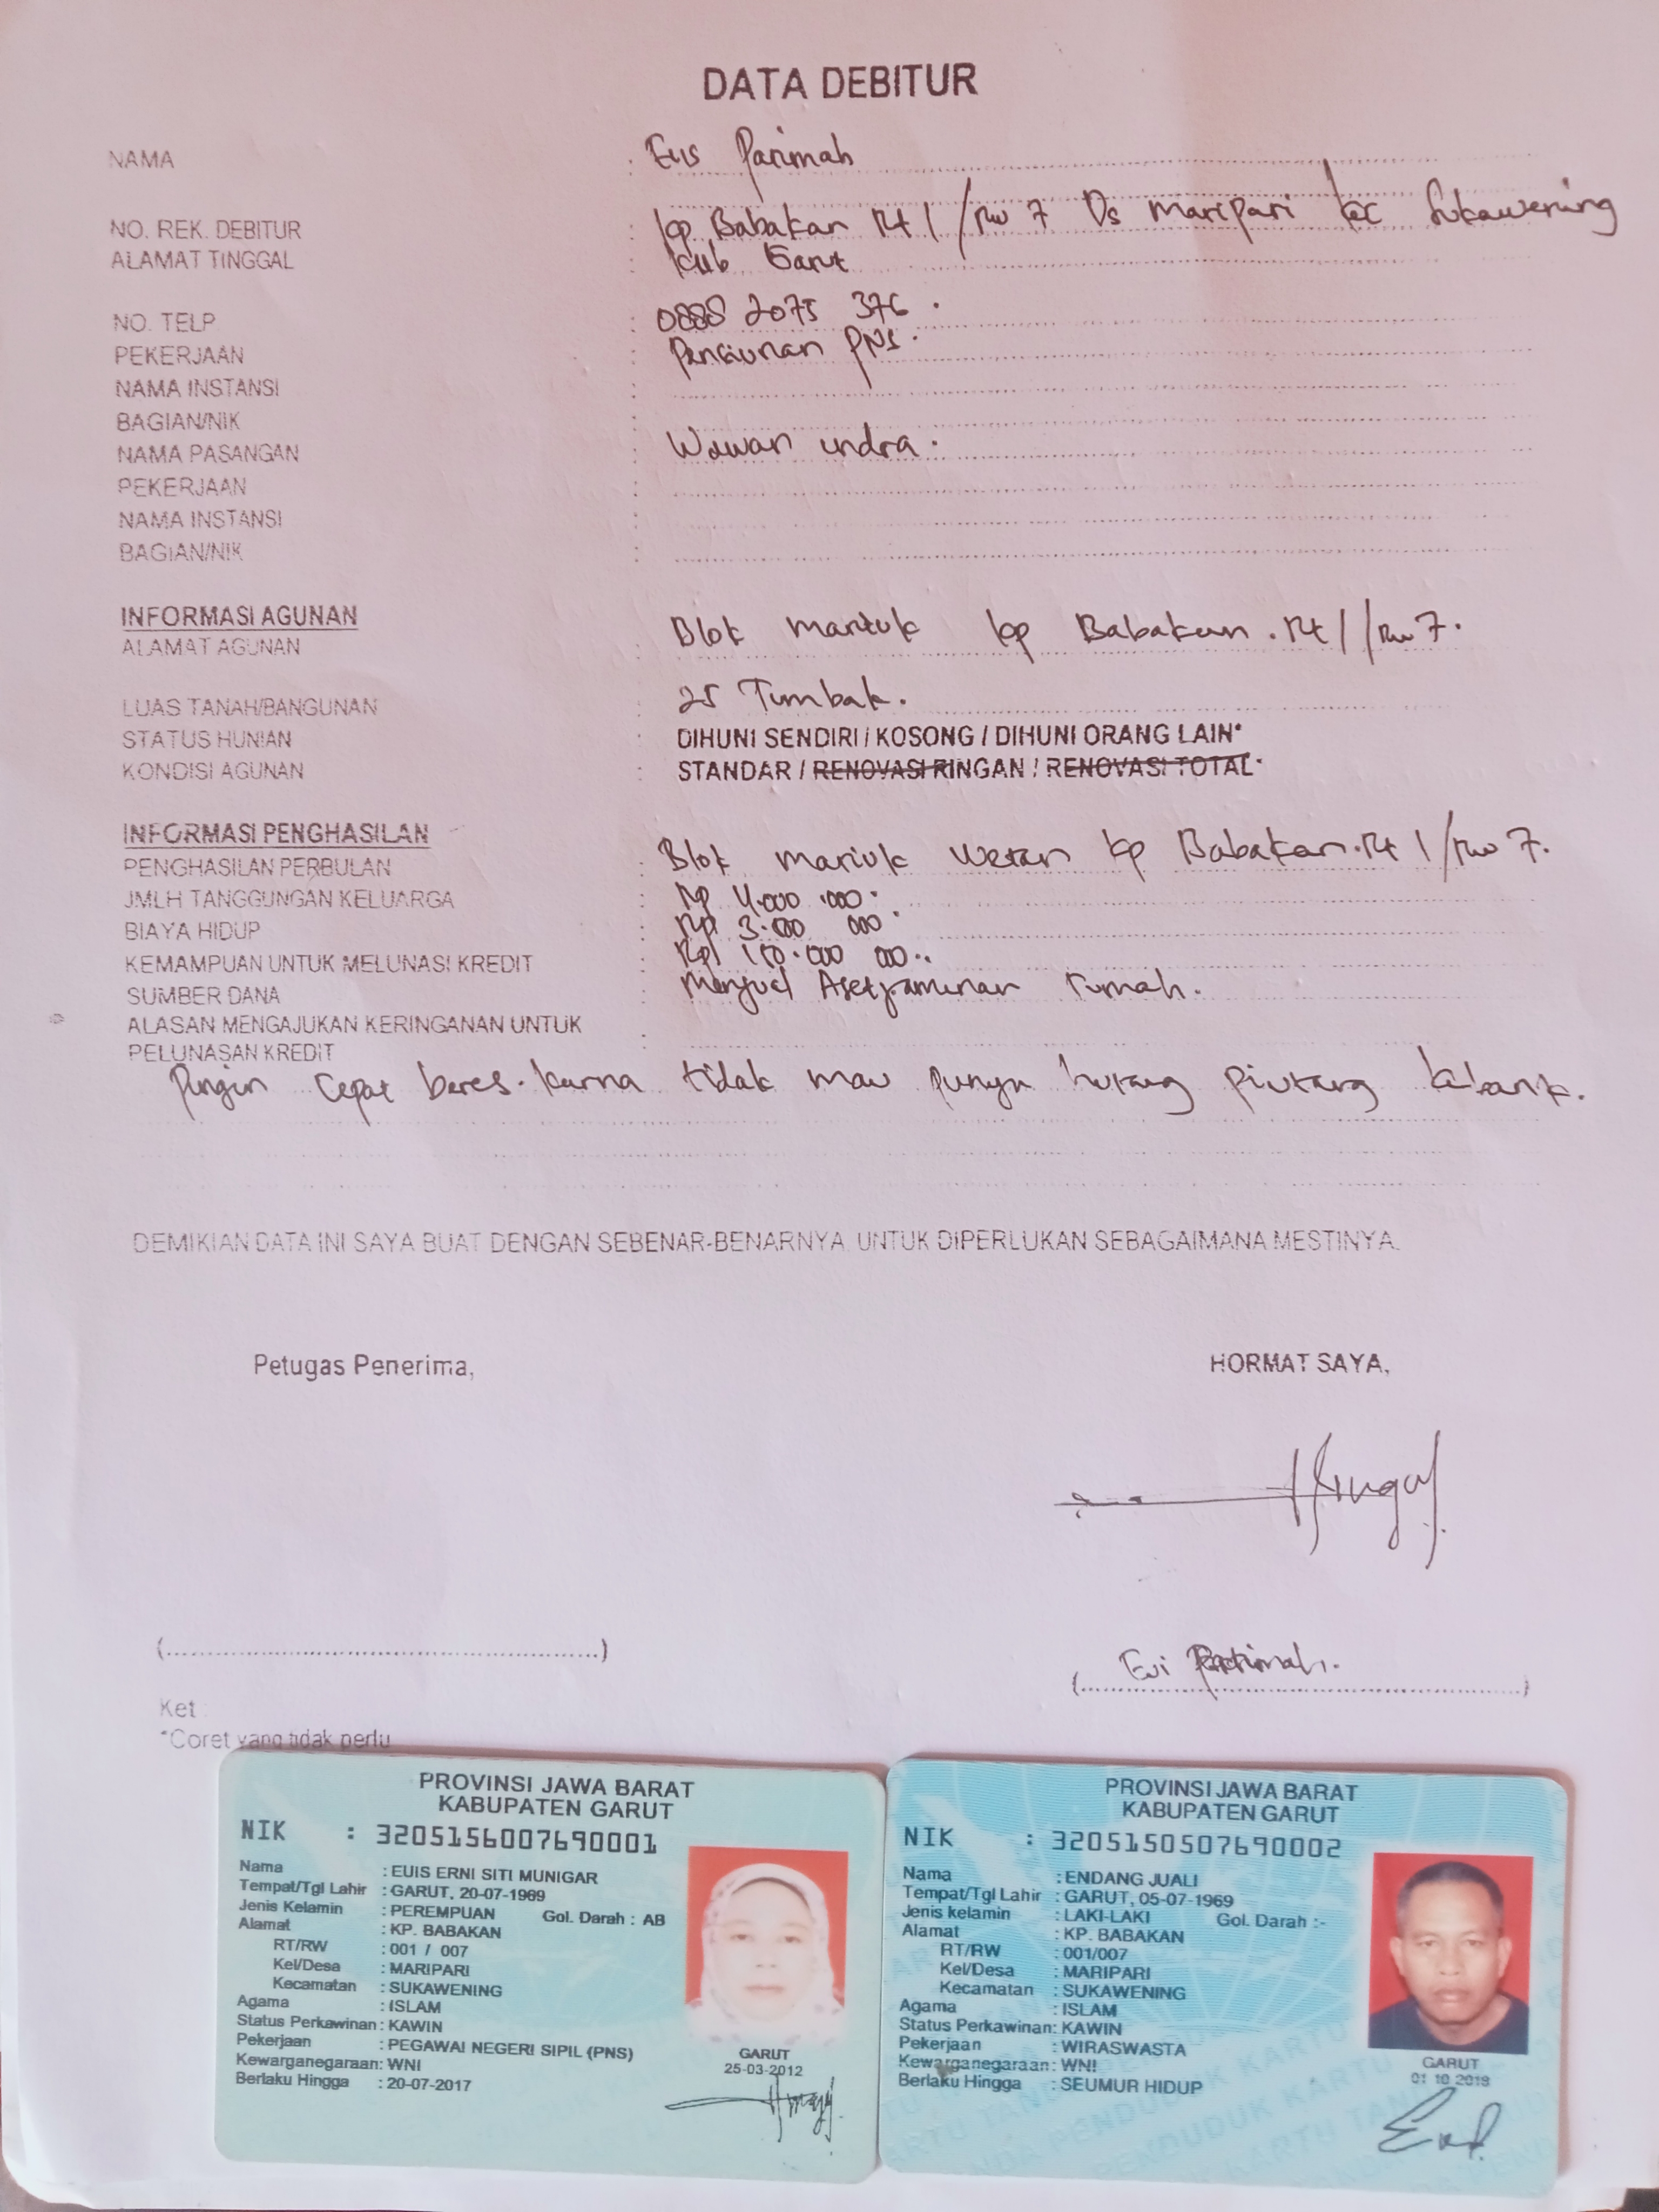 DATA DEBITUR
NAMA : Eus Parimah
NO. REK. DEBITUR : kp Babakan Rt 1/Rw 7 Ds Maripari kec Sukawening
ALAMAT TINGGAL : kub Garut
NO. TELP : 0888 2075 376.
PEKERJAAN : Pensiunan PNS.
NAMA INSTANSI :
BAGIAN/NIK :
NAMA PASANGAN : Wawan indra.
PEKERJAAN :
NAMA INSTANSI :
BAGIAN/NIK :
INFORMASI AGUNAN
ALAMAT AGUNAN : Blok mariuk kp Babakan. Rt 1/Rw 7.
LUAS TANAH/BANGUNAN : 25 Tumbak.
STATUS HUNIAN : DIHUNI SENDIRI / KOSONG / DIHUNI ORANG LAIN*
KONDISI AGUNAN : STANDAR / RENOVASI RINGAN / RENOVASI TOTAL*
INFORMASI PENGHASILAN
PENGHASILAN PERBULAN : Blok mariuk wetan kp Babakan. Rt 1/Rw 7.
JMLH TANGGUNGAN KELUARGA : Rp 4.000.000.
BIAYA HIDUP : Rp 3.000 000
KEMAMPUAN UNTUK MELUNASI KREDIT : Rp 150.000 000..
SUMBER DANA : Menjual Aset jaminan rumah.
ALASAN MENGAJUKAN KERINGANAN UNTUK :
PELUNASAN KREDIT
Pingin cepat beres. karna tidak mau punya hutang piutang kebank.
DEMIKIAN DATA INI SAYA BUAT DENGAN SEBENAR-BENARNYA, UNTUK DIPERLUKAN SEBAGAIMANA MESTINYA.
Petugas Penerima, HORMAT SAYA,
(..........) ( Eui Patimah. )
Ket :
*Coret yang tidak perlu
PROVINSI JAWA BARAT
KABUPATEN GARUT
NIK : 3205156007690001
Nama : EUIS ERNI SITI MUNIGAR
Tempat/Tgl Lahir : GARUT, 20-07-1969
Jenis Kelamin : PEREMPUAN Gol. Darah : AB
Alamat : KP. BABAKAN
RT/RW : 001 / 007
Kel/Desa : MARIPARI
Kecamatan : SUKAWENING
Agama : ISLAM
Status Perkawinan : KAWIN
Pekerjaan : PEGAWAI NEGERI SIPIL (PNS)
Kewarganegaraan: WNI
Berlaku Hingga : 20-07-2017
GARUT
25-03-2012
PROVINSI JAWA BARAT
KABUPATEN GARUT
NIK : 3205150507690002
Nama : ENDANG JUALI
Tempat/Tgl Lahir : GARUT, 05-07-1969
Jenis kelamin : LAKI-LAKI Gol. Darah :-
Alamat : KP. BABAKAN
RT/RW : 001/007
Kel/Desa : MARIPARI
Kecamatan : SUKAWENING
Agama : ISLAM
Status Perkawinan: KAWIN
Pekerjaan : WIRASWASTA
Kewarganegaraan: WNI
Berlaku Hingga : SEUMUR HIDUP
GARUT